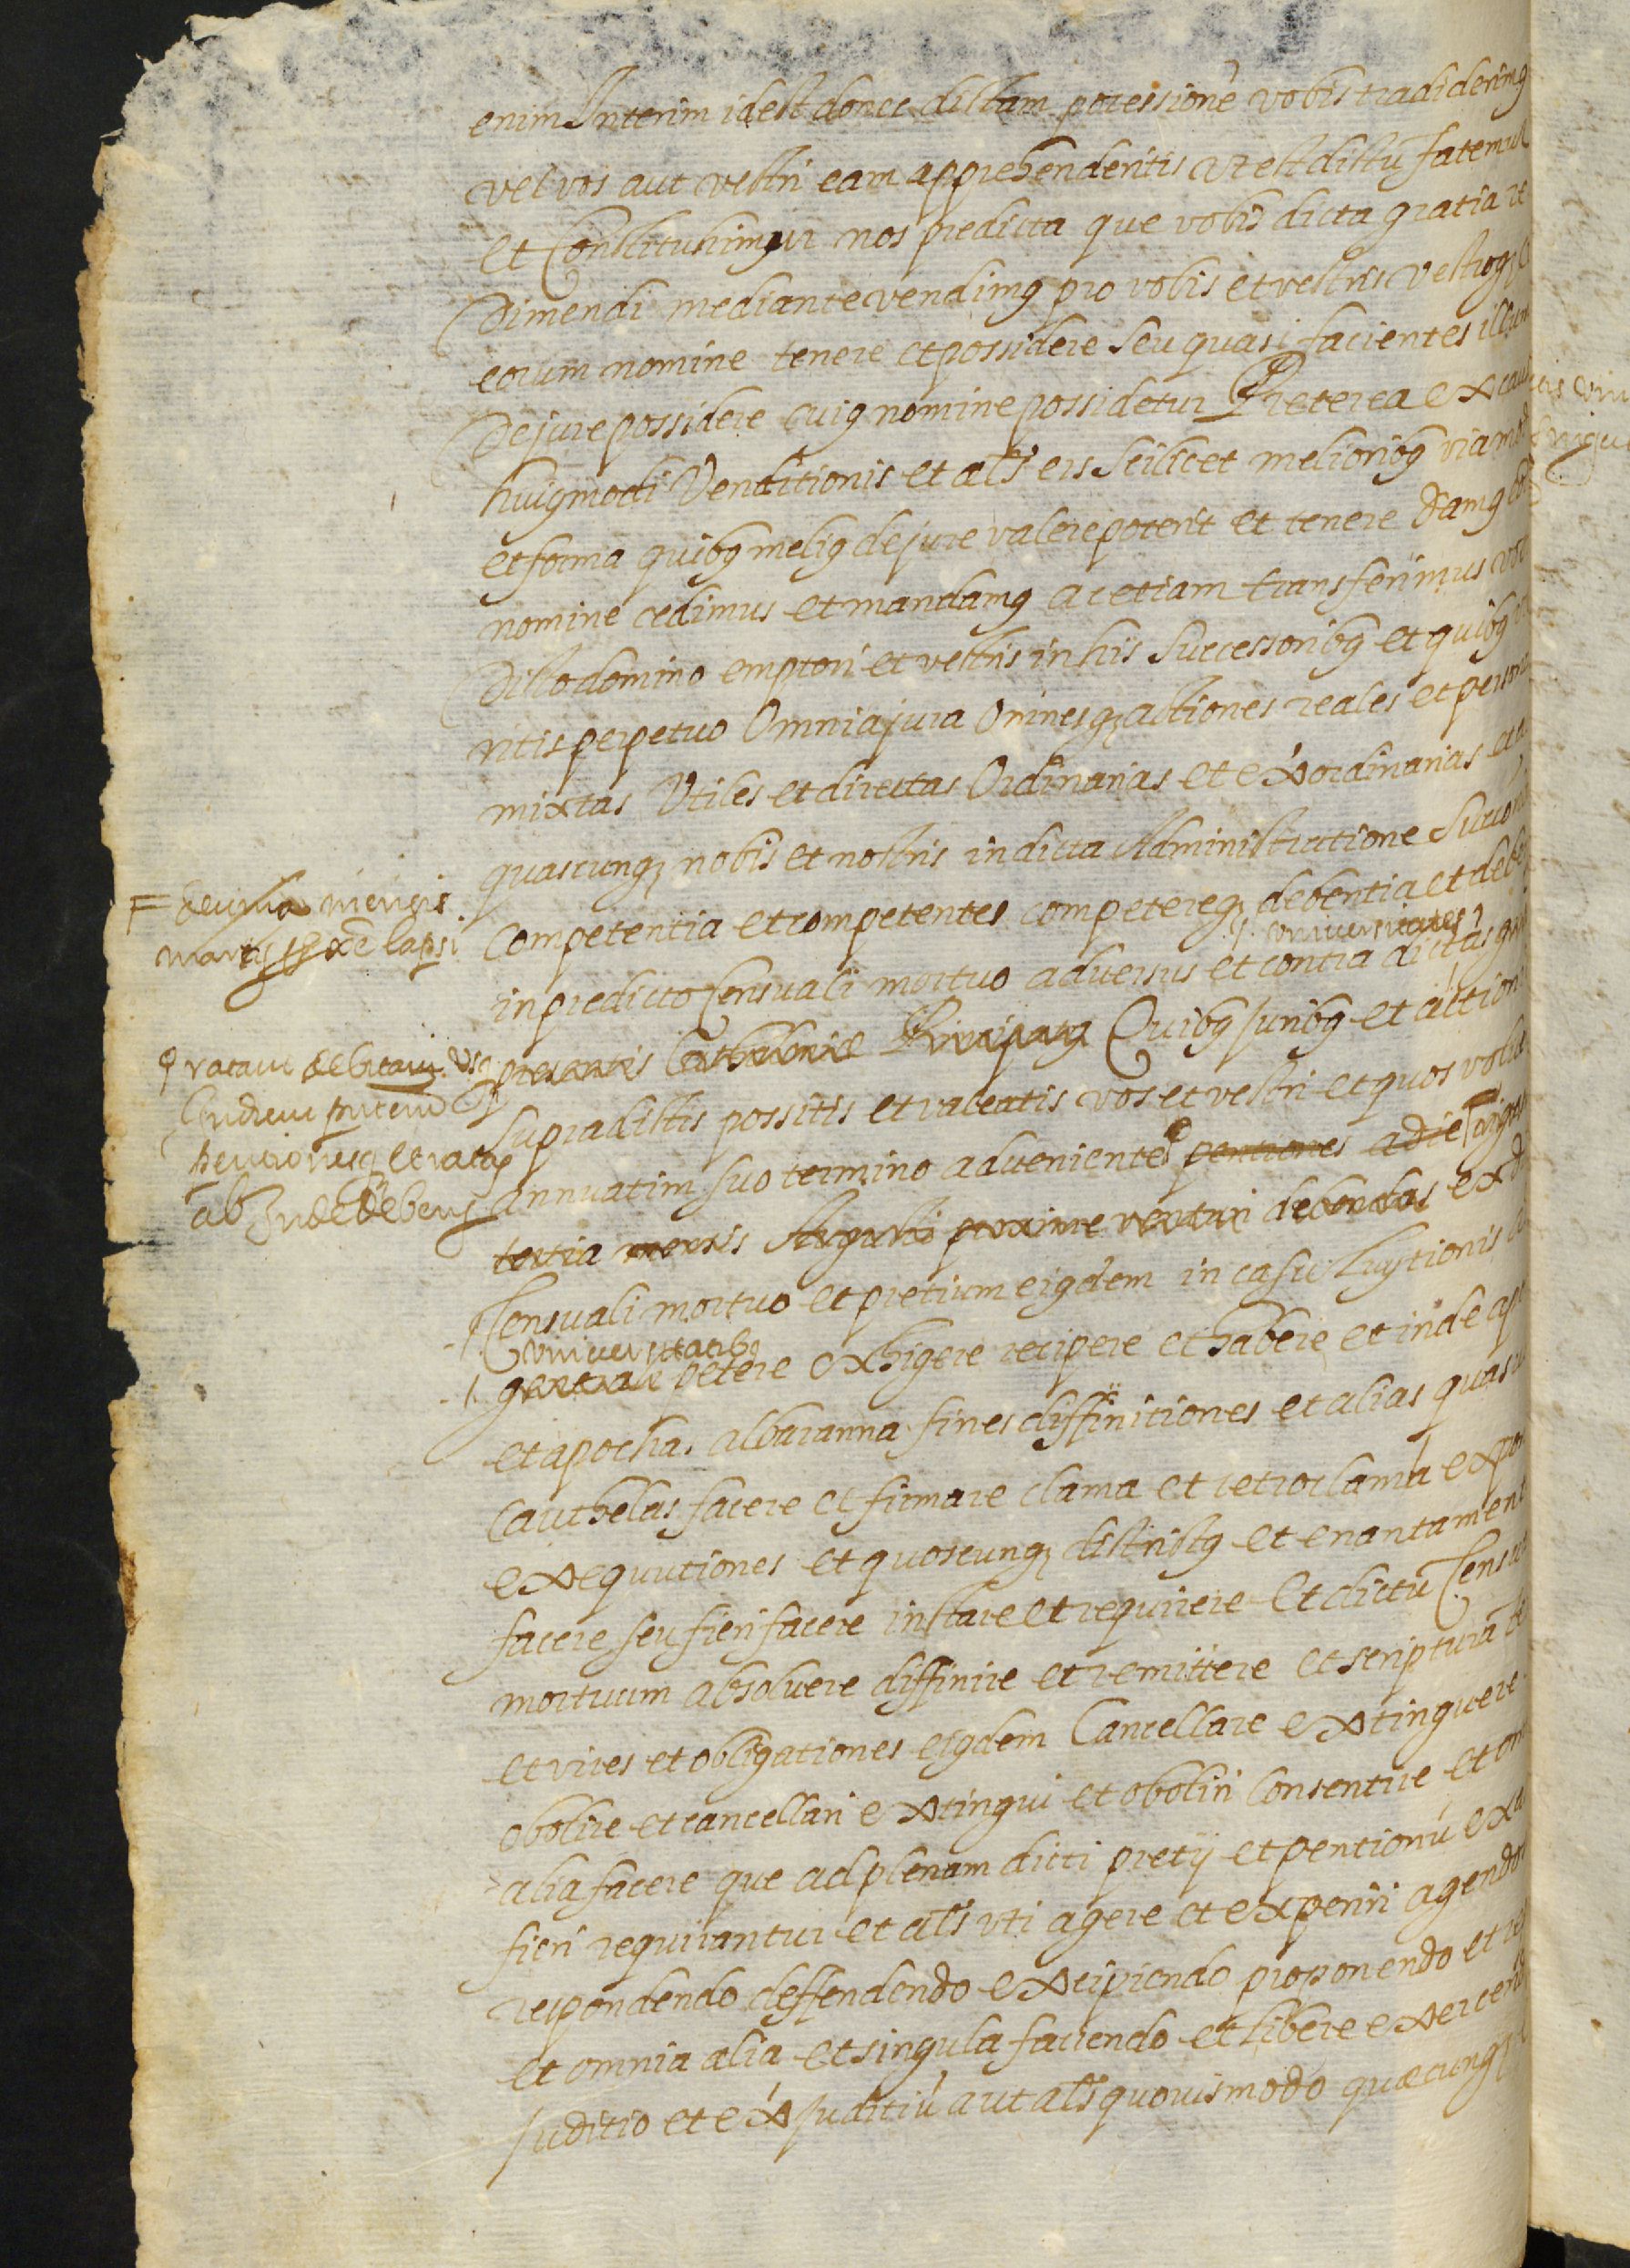 enim Interim idest donec dictam pocessionē vobis tradiderimꝰ
vel vos aut vestri eam apprehenderitis vt est dictū fatemur
et Constituhimur nos predicta que vobis dicta gratia re
Dimendi mediante vendimꝰ pro vobis et vestris vestroqꝫ
eorum nomine tenere et possidere seu quasi facientes illum
De jure possidere cuiꝰ nomine possidetur Preterea ex causa
huiꝰmodi Venditionis et als eis scilicet melioribꝰ via modo
et forma quibꝰ meliꝰ de jure valere poterit et tenere Damꝰ eod
nomine cedimus et mandamꝰ ac etiam transferimus vobis
Dicto domino emptori et vestris in his successoribꝰ et quibꝰ
ritis perpetuo Omnia jura Omnesqꝫ actiones reales et person
mixtas Vtiles et directas Ordinarias et exŕordinarias et
quascunqꝫ nobis et nostris in dicta Administratione
Competentia et competentes competereqꝫ debentia et deb
universitates
in predicto Censuali mortuo adversus et contra dictas
presentis Cathalonie Principatꝰ Quibꝰ juribꝰ et action
= decima mensis
martij elapsi
ratam debitam
Indiem
pencionesqꝫ et ratas
ab Inde debens
supradictis possitis et valeatis vos et vestri et quos volue
annuatim suo termino advenientes pentiones a die
tertia mensis Augusti proxime venturi debendas ex d
Censuali mortuo et pretium eiꝰdem in casu Luytionis
universitatibꝰ
petere exhigere recipere et habere et inde
et apocha. albaranna fines diffinitiones et alias quas
Cauthelas facere et firmare clama et retroclama expo
exequutiones et quoscunqꝫ districtꝰ et enantament
facere seu fieri facere instare et requirere Et dictū Censu
mortuum absolvere diffinire et remittere et scripturā
et vires et obligationes eiꝰdem Cancellare extinguere
obolire et cancellari extingui et oboliri Consentire et om
alia facere que ad plenam dicti pretij et pentionū
fieri requirantur et als vti agere et experiri agendo
respondendo deffendendo excipiendo proponendo et
et omnia alia et singula faciendo et libere exercendo
Juditio et exŕ Juditiū aut als quovismodo quecunqꝫ